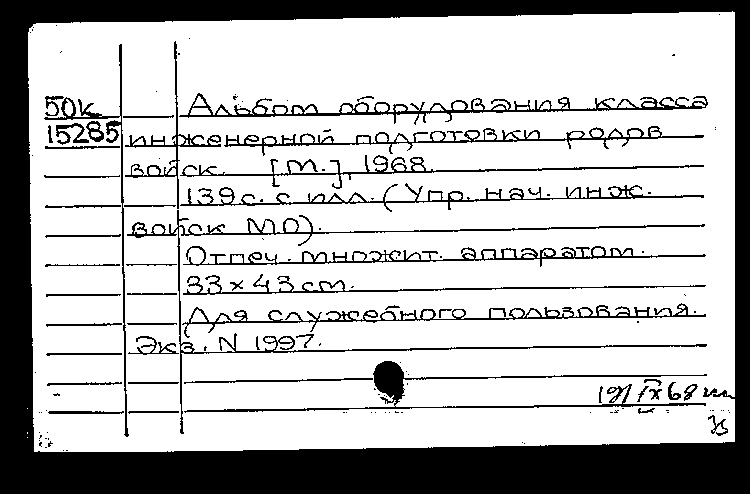 50к Альбом оборудования класса
15285 инженерной подготовки родов
войск. [М.], 1968.
139с. с илл. (Упр. нач. инж.
войск МО).
Отпеч. множит. аппаратом.
33×43 cm.
Для служебного пользования.
Экз. N 1997.
IX 68